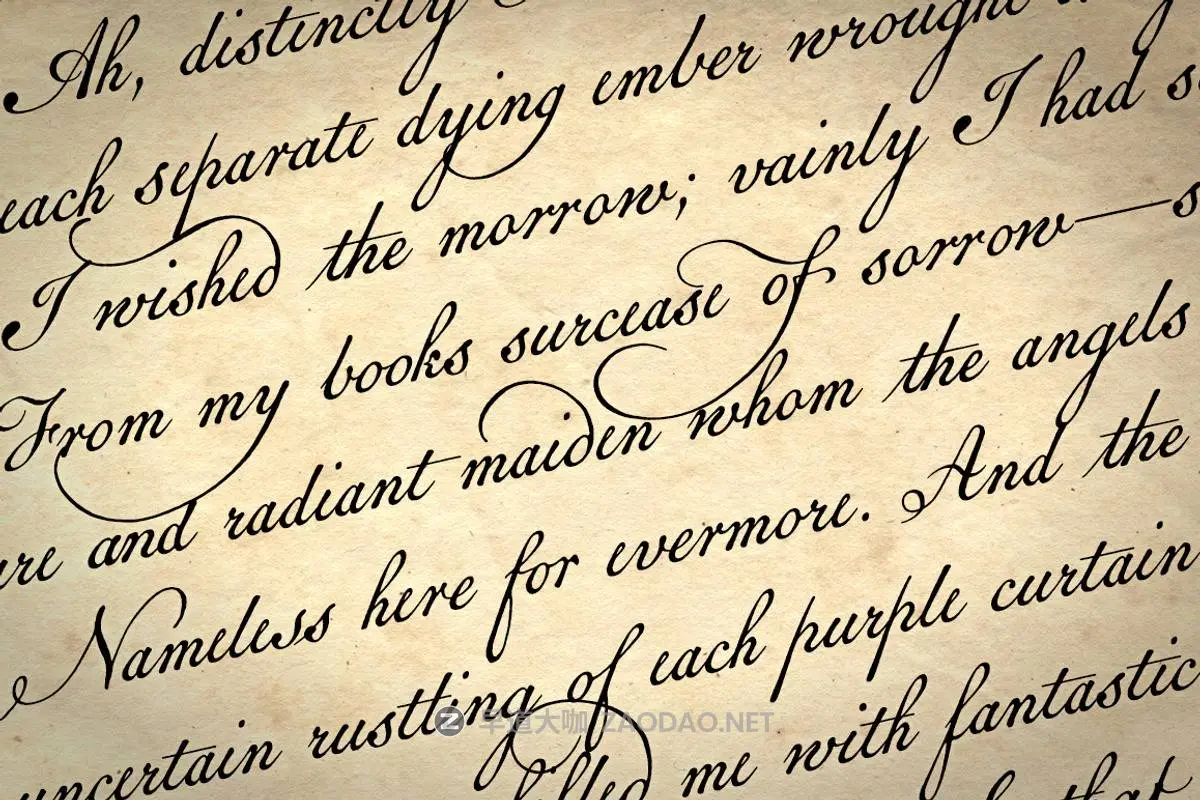 Ah, distinctly
each separate dying ember wrought
I wished the morrow; vainly I had
From my books surcease of sorrow—s
are and radiant maiden whom the angels
Nameless here for evermore. And the
uncertain rustling of each purple curtain
filled me with fantastic
that
早道大咖 ZAODAO.NET